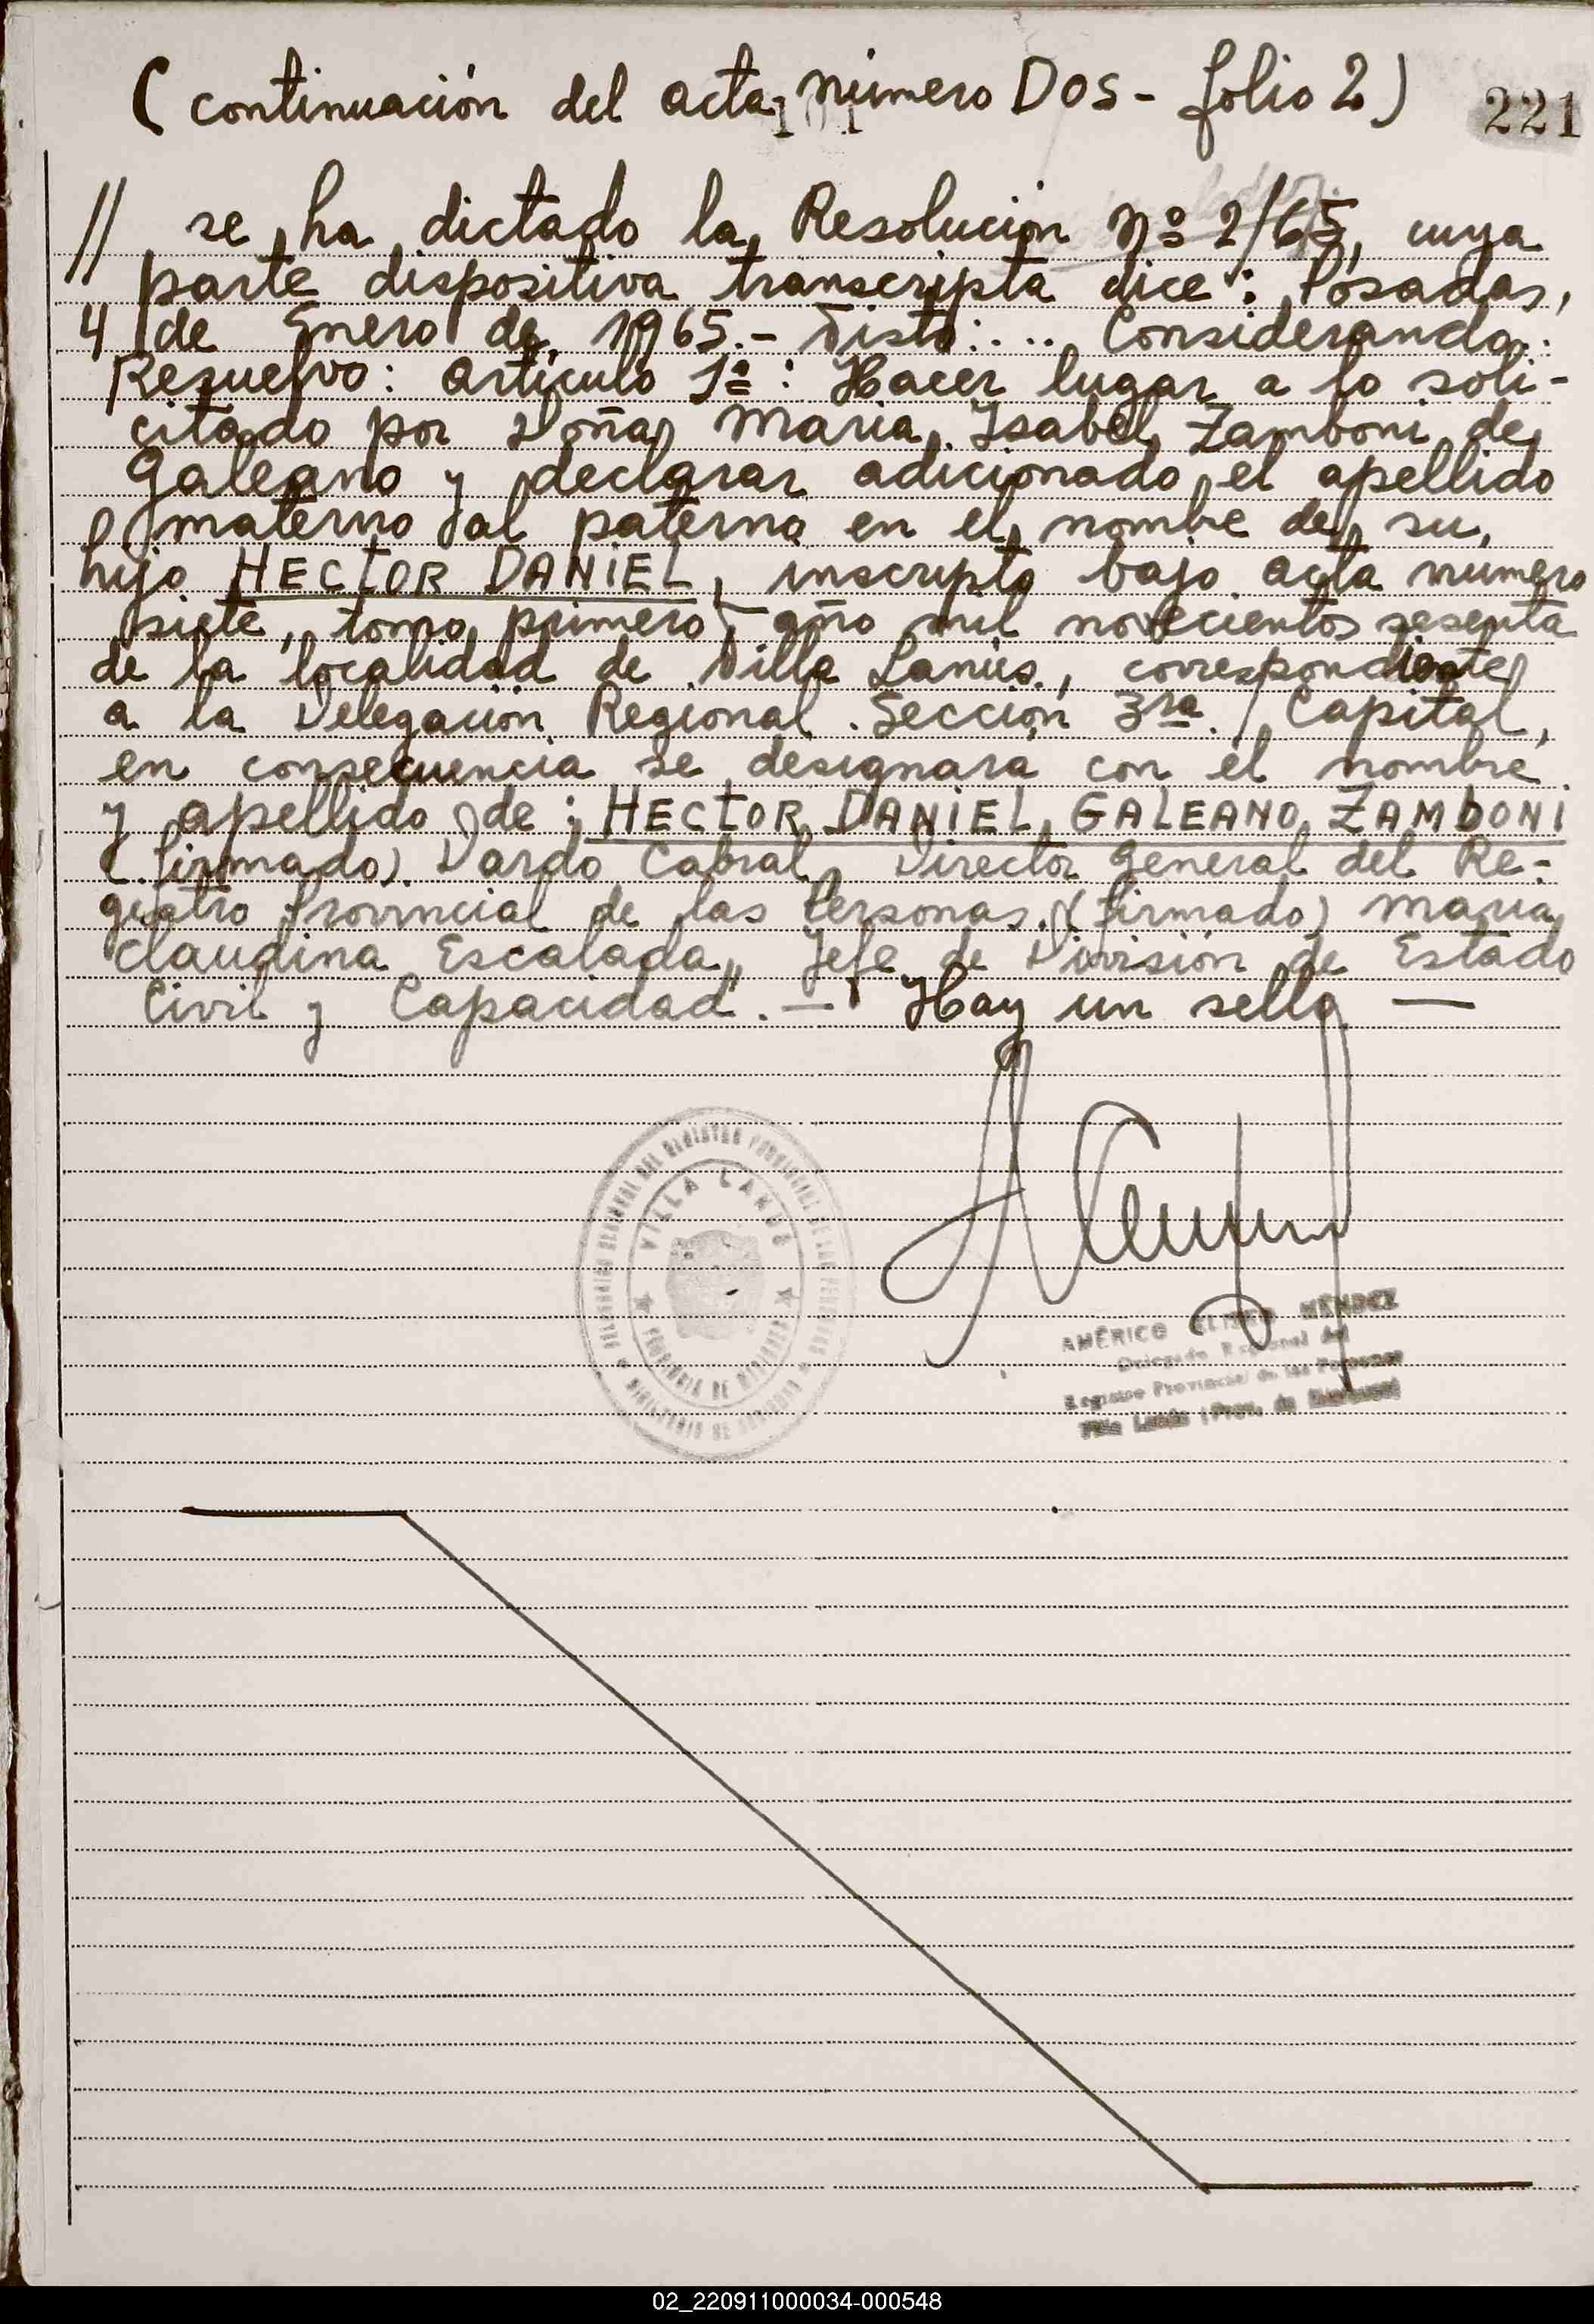 (continuación del acta número DOS - folio 2)
221
// se ha dictado la Resolución Nº 2/65, cuya
parte dispositiva transcripta dice: Posadas,
4 de Enero de 1965.- Visto: .... Considerando:
Resuelvo: Artículo 1º: Hacer lugar a lo soli-
citado por Doña Maria Isabel Zamboni de
Galeano y declarar adicionado el apellido
materno al paterno en el nombre de su
hijo HECTOR DANIEL, inscripto bajo acta numero
siete, tomo primero, año mil novecientos sesenta
de la localidad de Villa Lanús, correspondiente
a la Delegación Regional Sección 3ra. Capital,
en consecuencia se designará con el nombre
y apellido de: HECTOR DANIEL GALEANO ZAMBONI
(firmado) Dardo Cabral, Director General del Re-
gistro Provincial de las Personas. (Firmado) Maria
Claudina Escalada, Jefe de División de Estado
Civil y Capacidad". - Hay un sello —
DEL REGISTRO PROVINCIAL DE LAS PERSONAS
VILLA LANUS
PROVINCIA DE MISIONES
MINISTERIO DE GOBIERNO
AMÉRICO MÉNDEZ
Delegado Regional del
Registro Provincial de las Personas
Villa Lanús (Prov. de Misiones)
02_220911000034-000548